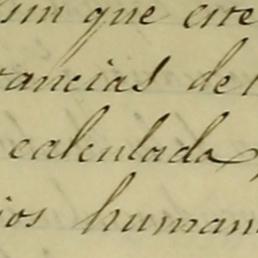 que este
tancias de
calculada,
ios human